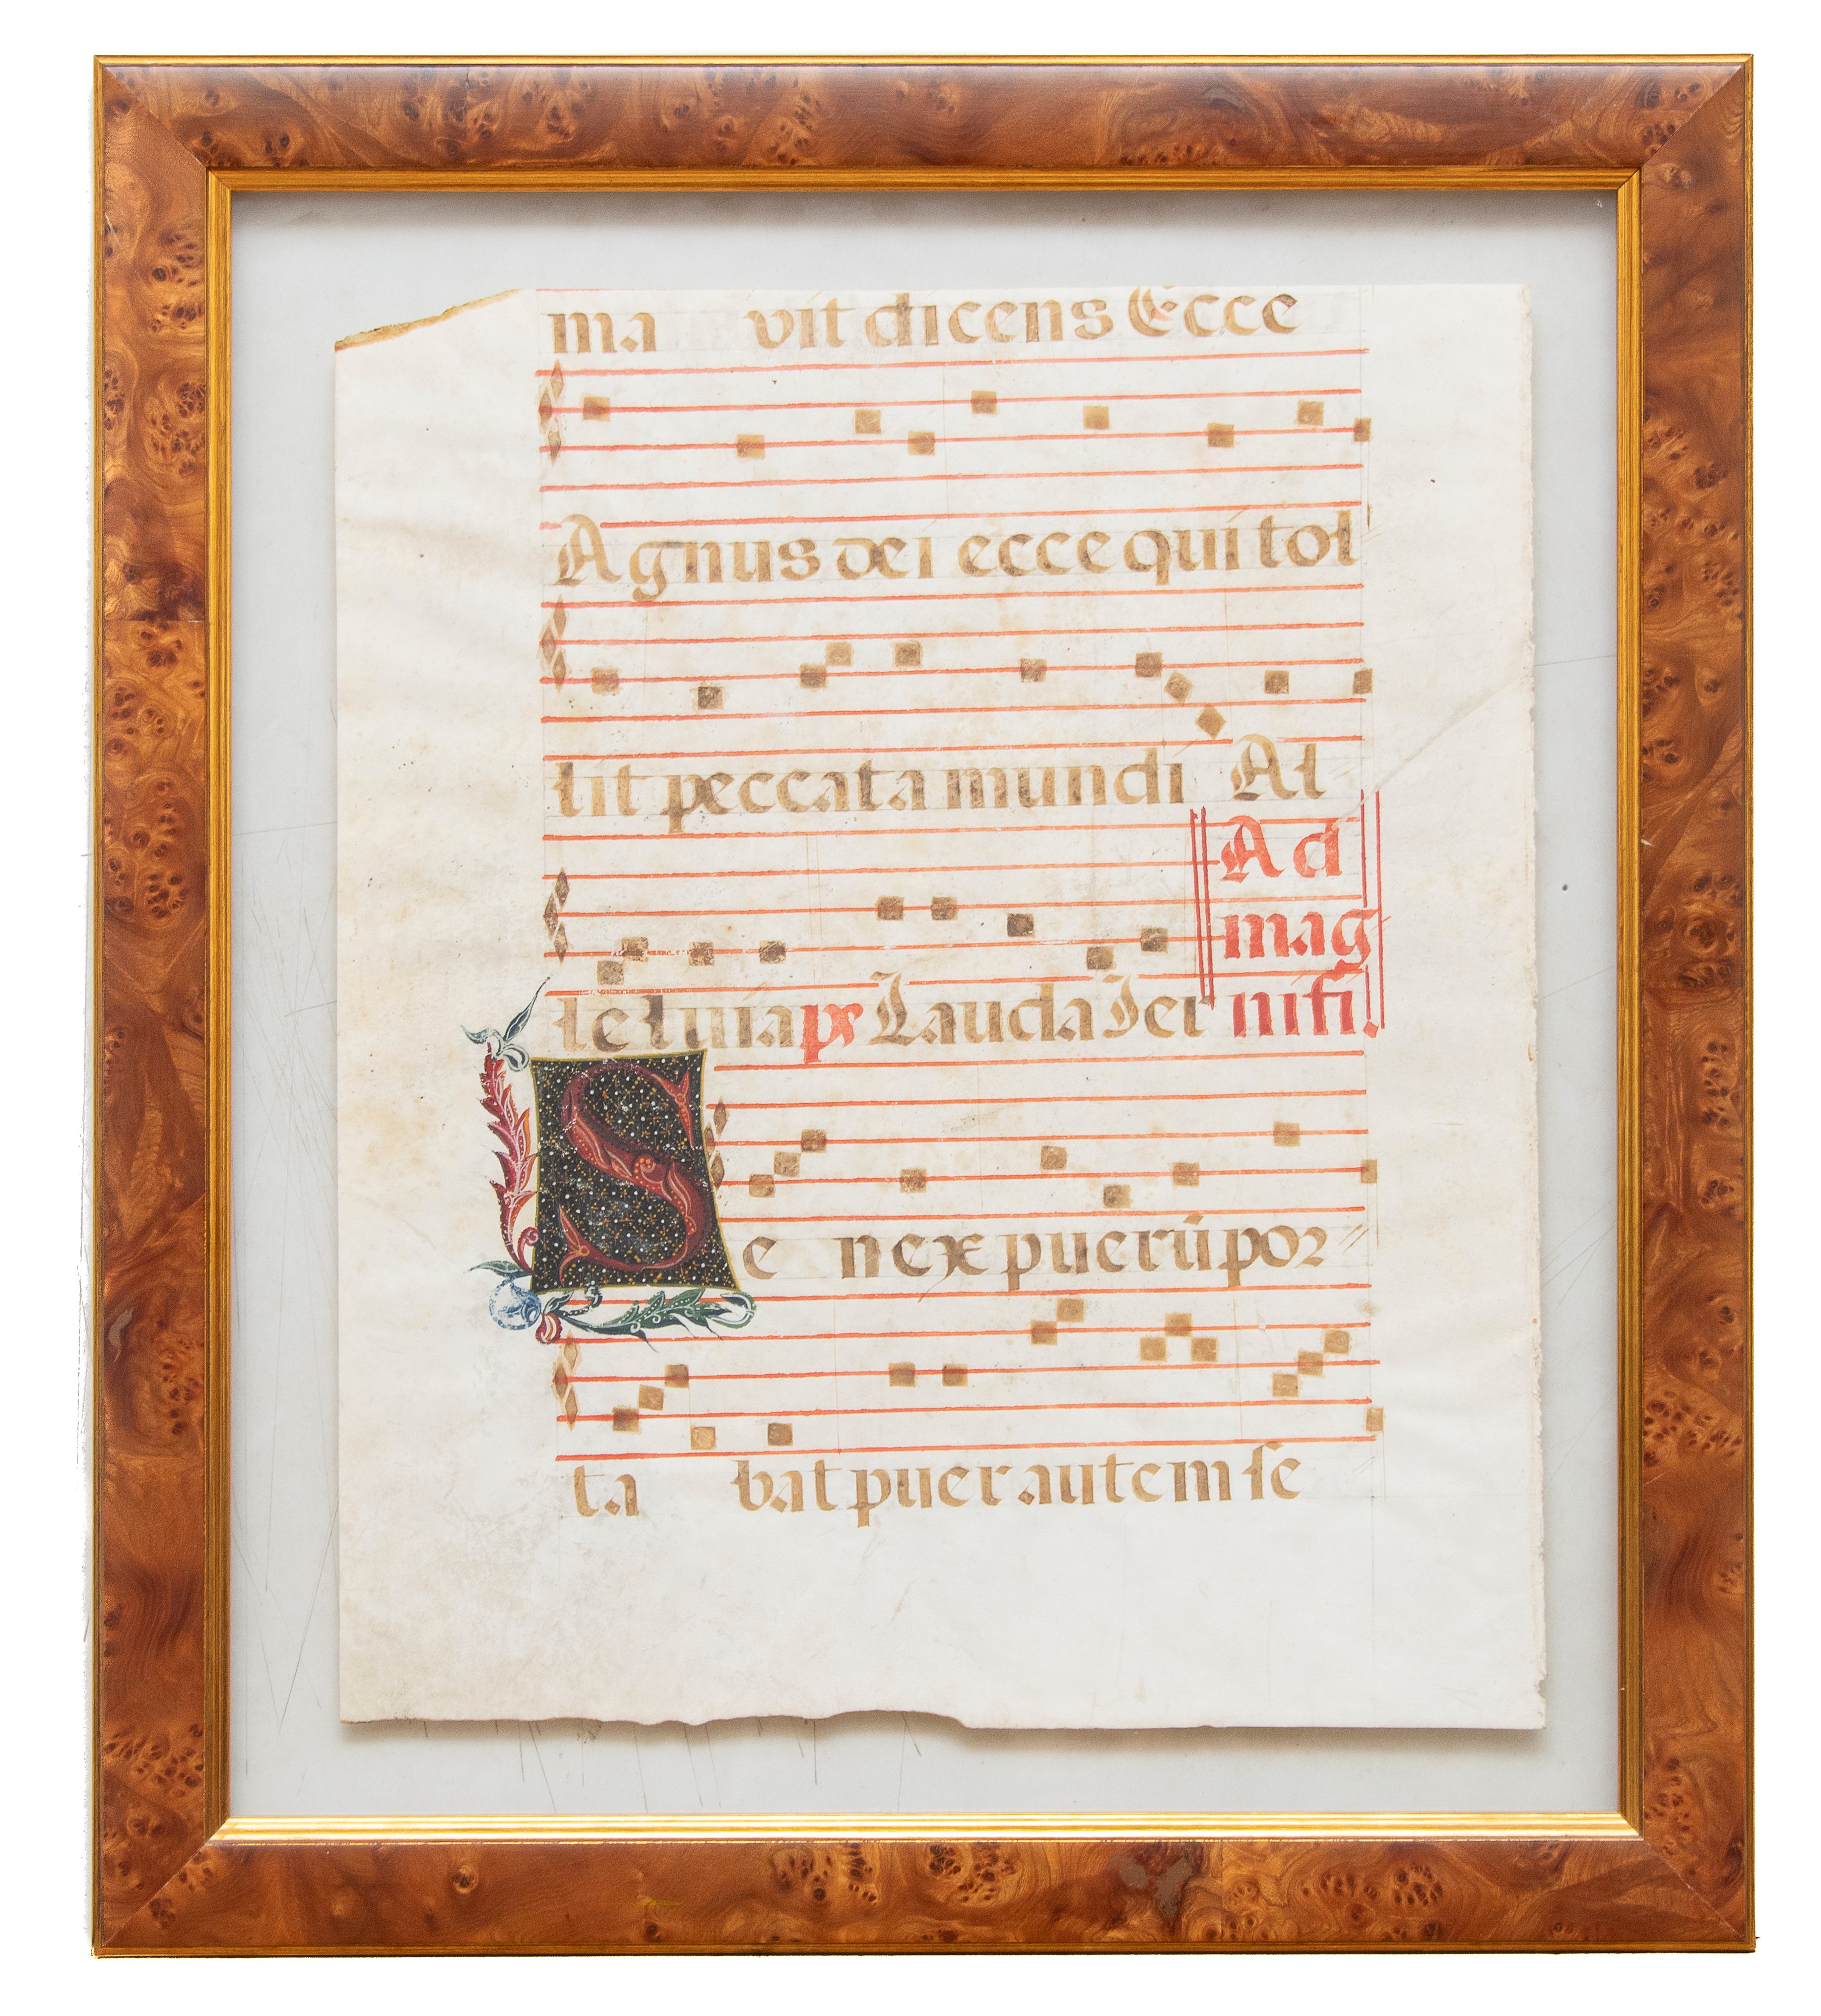 ma vit dicens Ecce
Agnus dei ecce qui tol
lit peccata mundi Al
Ad
mag
le luia ps Lauda Jer nifi.
Se nex puerū por
ta bat puer autem se